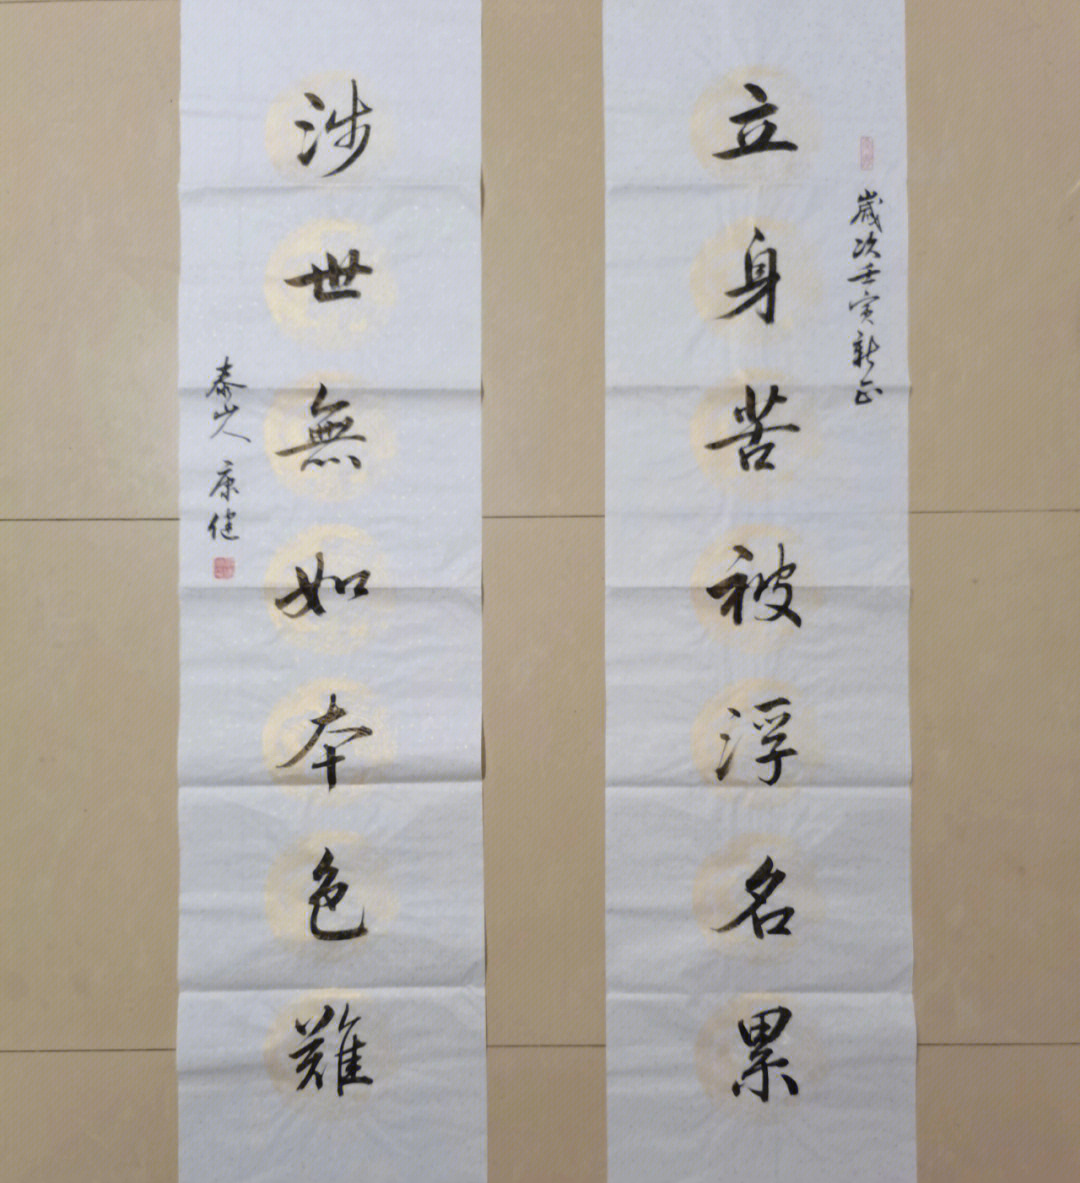 歲次壬寅新正
立身苦被浮名累
涉世無如本色難
泰山人 康健